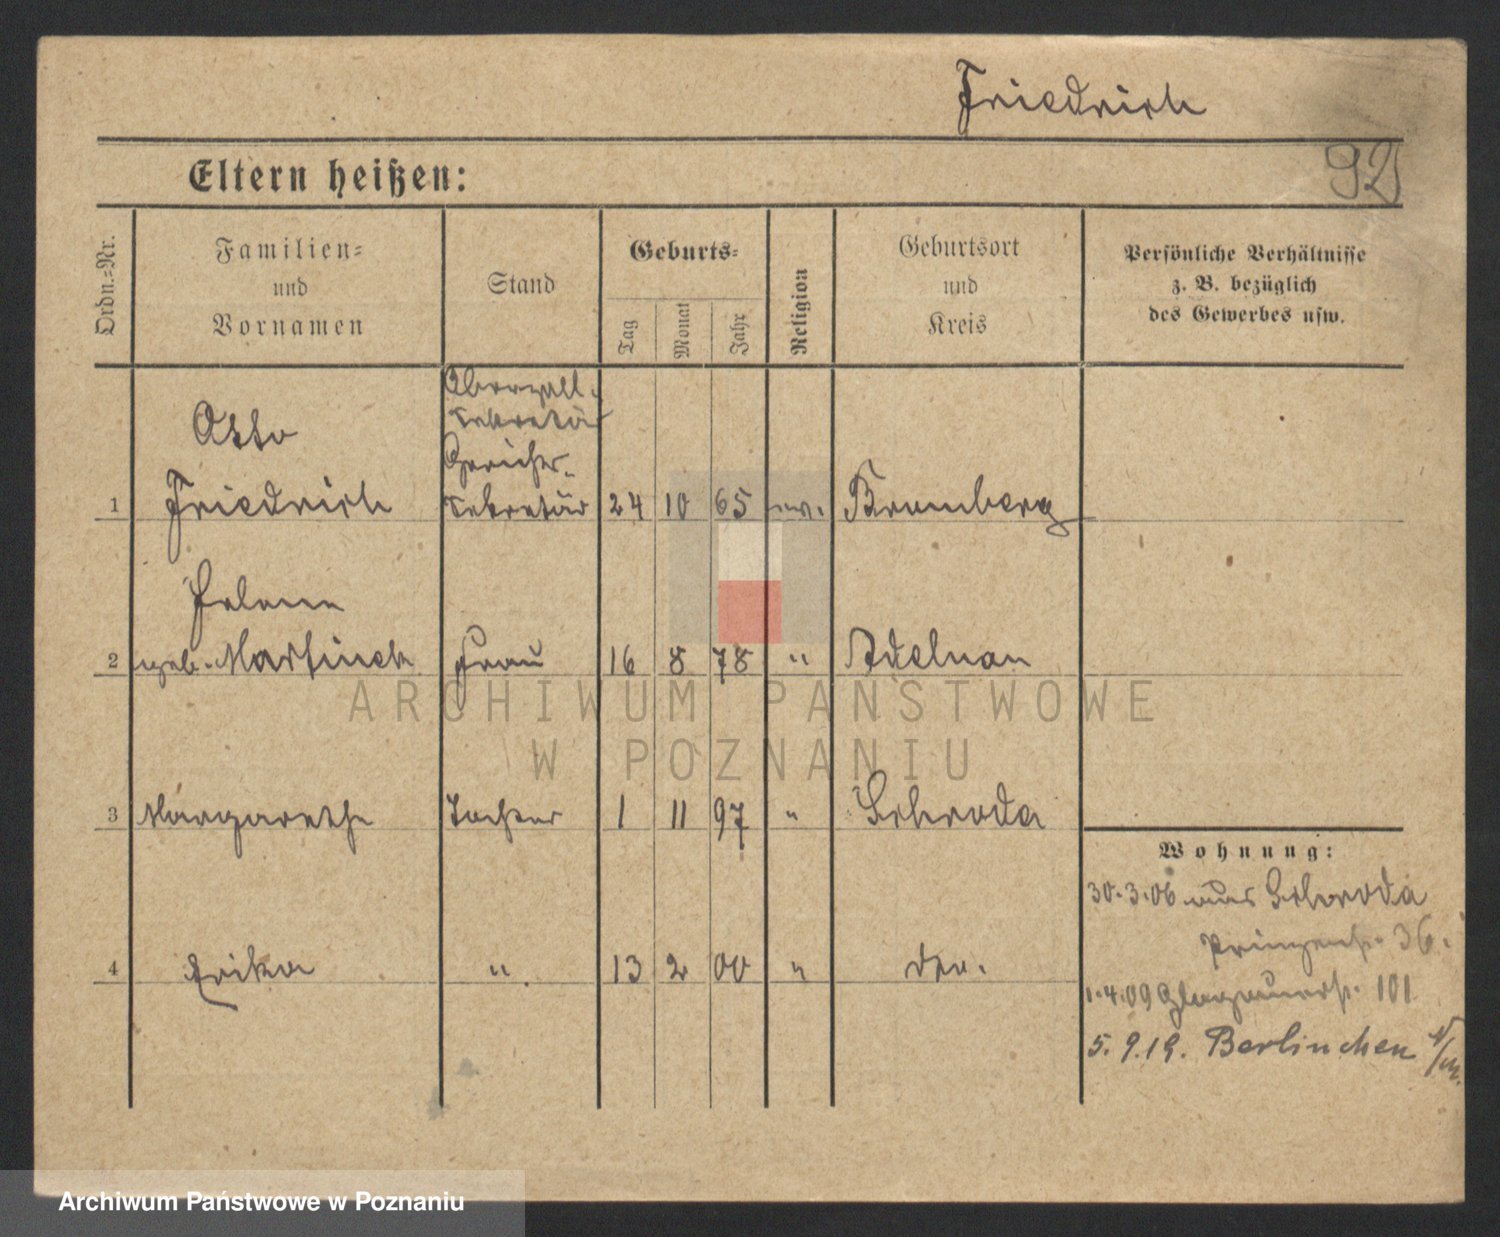 Friedrich
92
Eltern heißen:
Ordn.-Nr.
Familien-
und
Vornamen
Stand
Geburts-
Tag
Monat
Jahr
Religion
Geburtsort
und
Kreis
Persönliche Verhältnisse
z. B. bezüglich
des Gewerbes usw.
Otto
Sekretär
Gerichts-
1 Friedrich Sekretär 24 10 65 ev. Bromberg
Helene
2 geb. Martinek Frau 16 8 78 " Adelnau
3 Margarethe Tochter 1 11 97 " Schroda
4 Erika " 13 2 00 " do.
Wohnung:
30.3.06 aus Schroda
Prinzenstr. 36.
1.4.09 Glogauerstr. 101
5.9.19. Berlinchen N/M.
ARCHIWUM PAŃSTWOWE
W POZNANIU
Archiwum Państwowe w Poznaniu